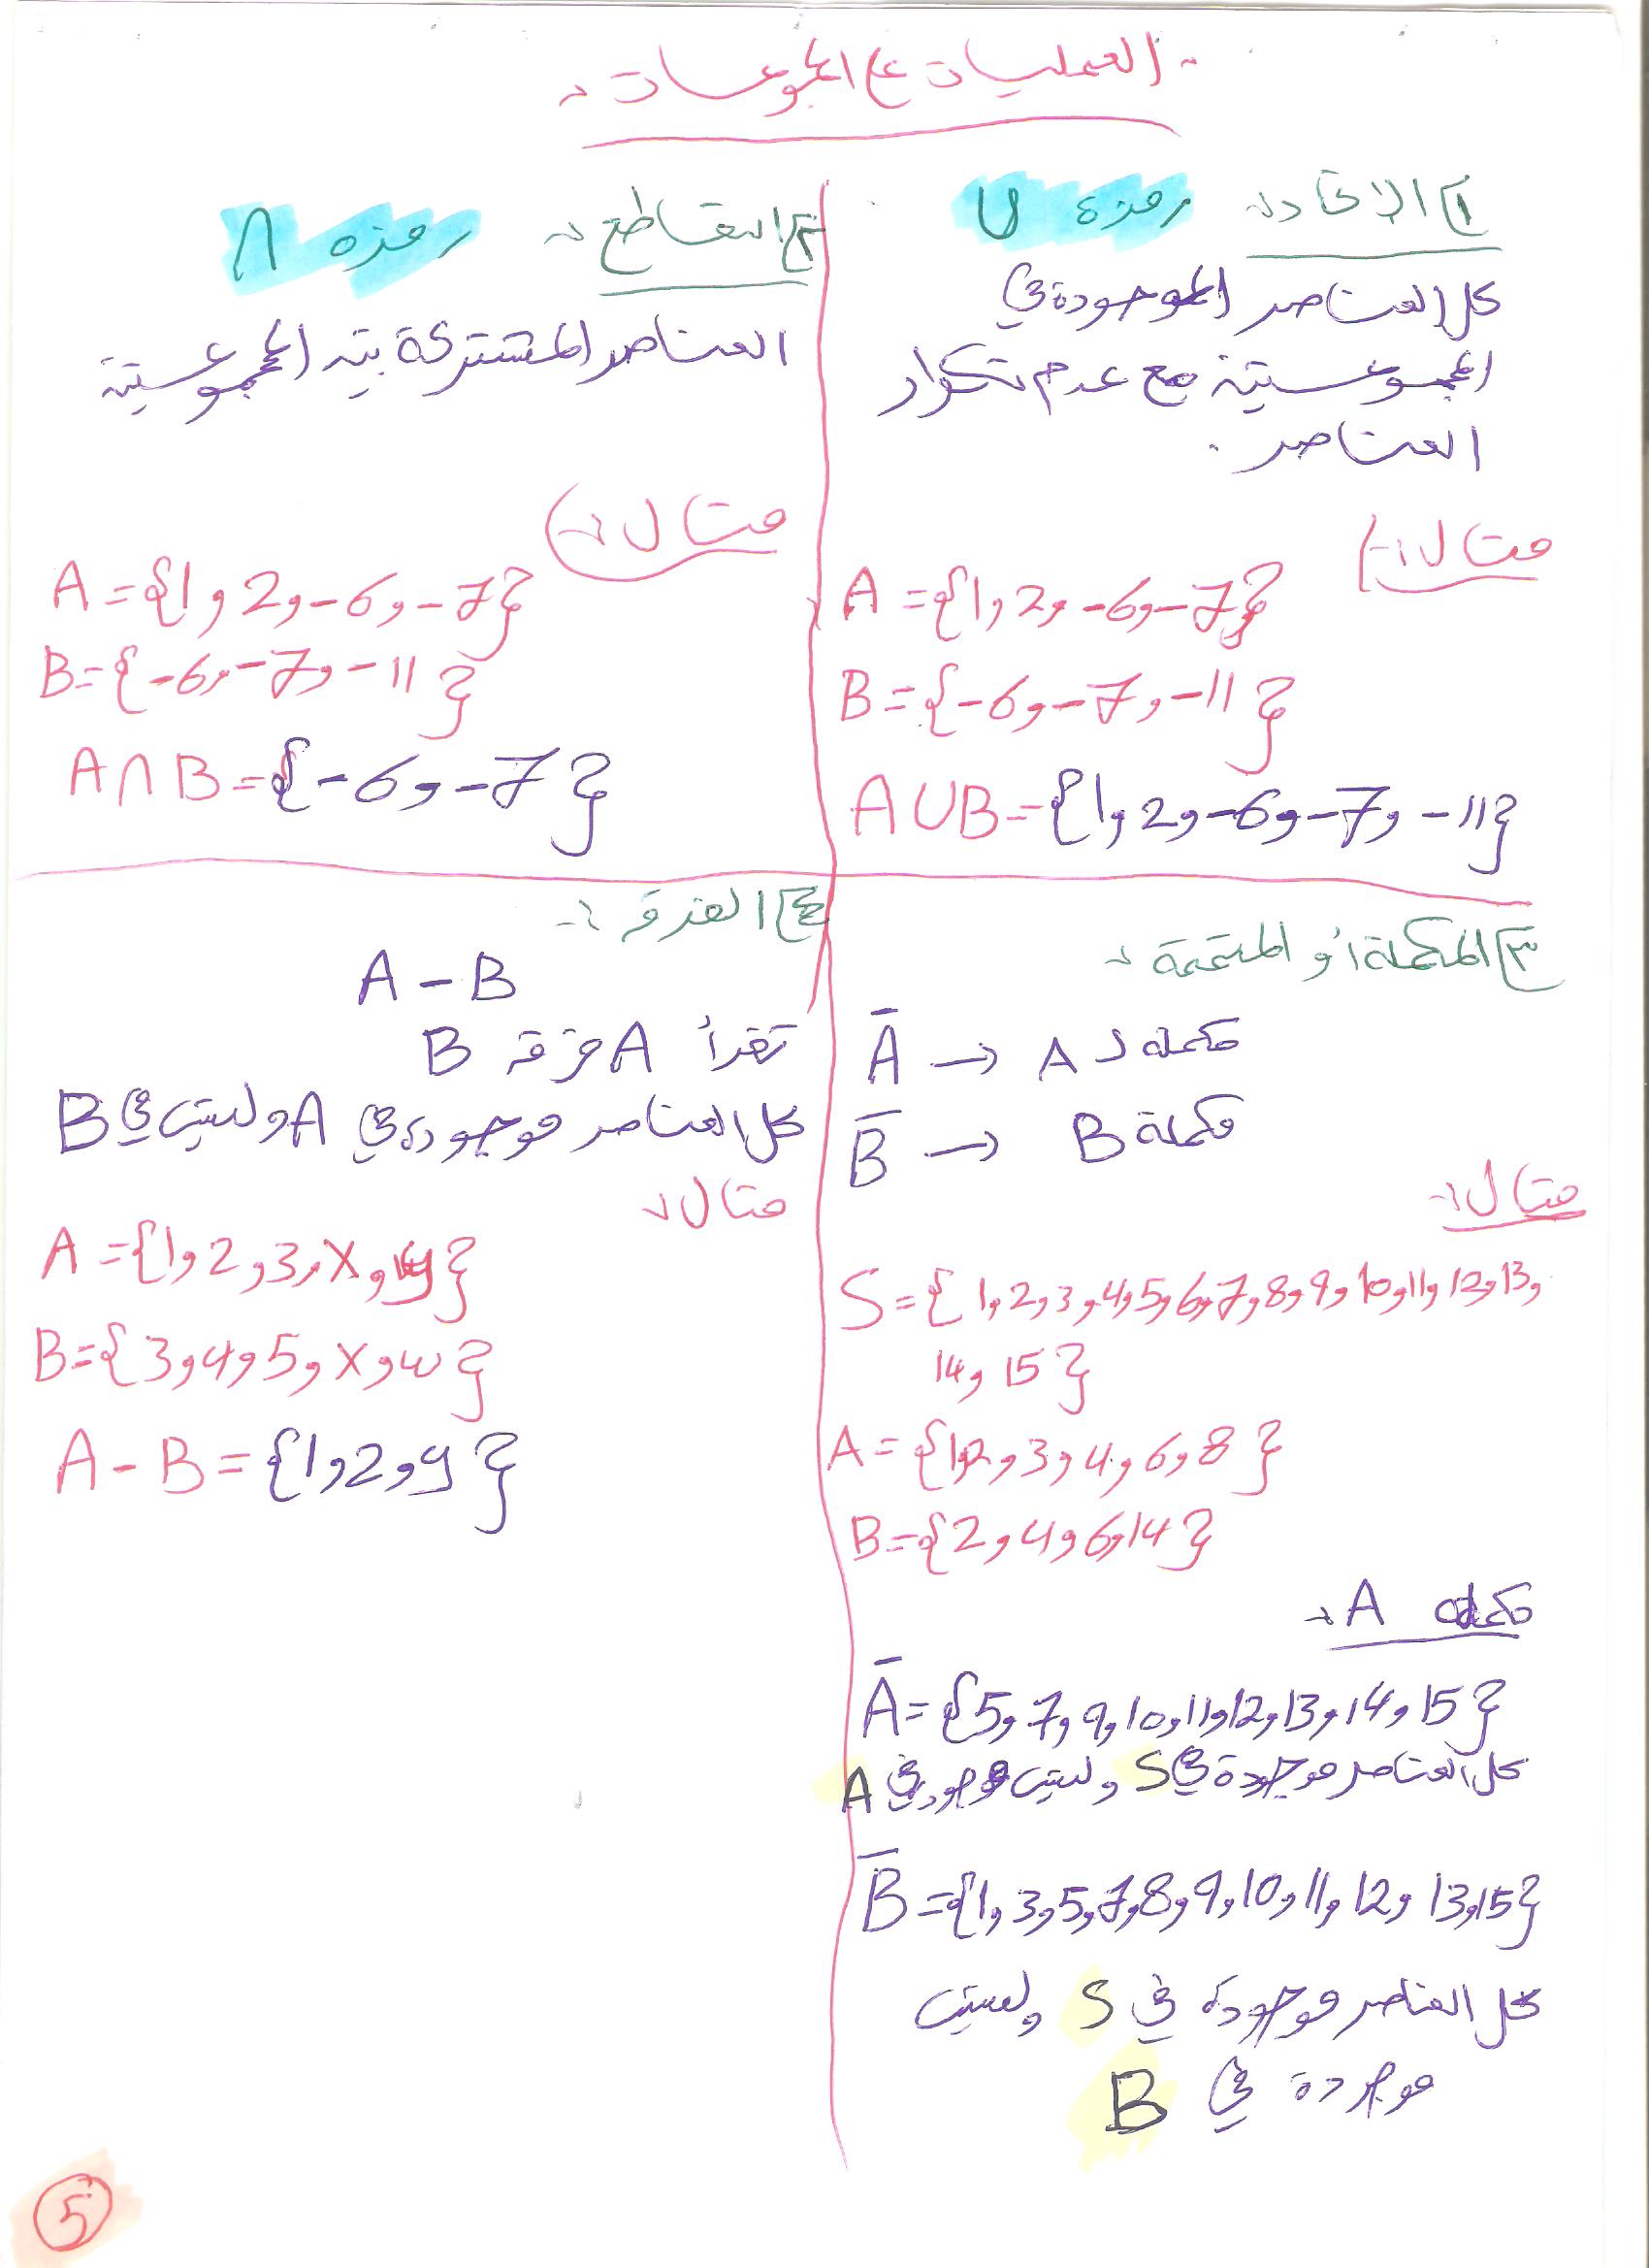 العمليات ع المجموعات :-
١] الاتحاد :- رمزه U
كل العناصر الموجودة في
المجموعتين مع عدم تكرار
العناصر .
مثال :-
A = {1, 2, -6, -7}
B = {-6, -7, -11}
A ∪ B = {1, 2, -6, -7, -11}
٢] التقاطع :- رمزه ∩
العناصر المشتركة بين المجموعتين
مثال :-
A = {1, 2, -6, -7}
B = {-6, -7, -11}
A ∩ B = {-6, -7}
٣] المكملة أو المتممة :-
Ā → A مكملة لـ
B̄ → B مكملة
مثال :-
S = { 1, 2, 3, 4, 5, 6, 7, 8, 9, 10, 11, 12, 13,
14, 15 }
A = {1, 2, 3, 4, 6, 8 }
B = {2, 4, 6, 14 }
مكملة A :-
Ā = {5, 7, 9, 10, 11, 12, 13, 14, 15 }
كل العناصر موجودة في S وليست موجودة في A
B̄ = {1, 3, 5, 7, 8, 9, 10, 11, 12, 13, 15}
كل العناصر موجودة في S وليست
موجودة في B
٤] الفرق :-
A - B
تقرأ A فرق B
كل العناصر موجودة في A وليست في B
مثال :-
A = {1, 2, 3, x, y}
B = {3, 4, 5, x, w}
A - B = {1, 2, y}
5